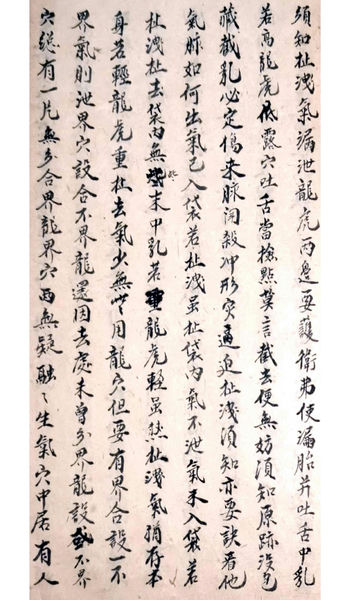 須知扯洩氣漏泄龍虎两邊要護衛弗使漏胎并吐舌中乳
若高龍虎低露穴吐舌當檢點莫言截去便無妨須知原跡没了
藏截乱必定傷來脉洞殺冲形灾逼迫扯淺須知亦要訣看他
氣脉如何出氣已入袋若扯洩虽扯袋内氣不泄氣未入袋若
扯洩扯去袋内無些末中乳若重龍虎輕虽然扯淺氣猶存本
身若輕龍虎重扯去氣少無些用龍穴但要有界合設一不
界氣則泄界穴設合不界龍還因去處未曾分界龍設或不界
穴總有一片無分合界龍界穴两無疑融〻生氣穴中居有人